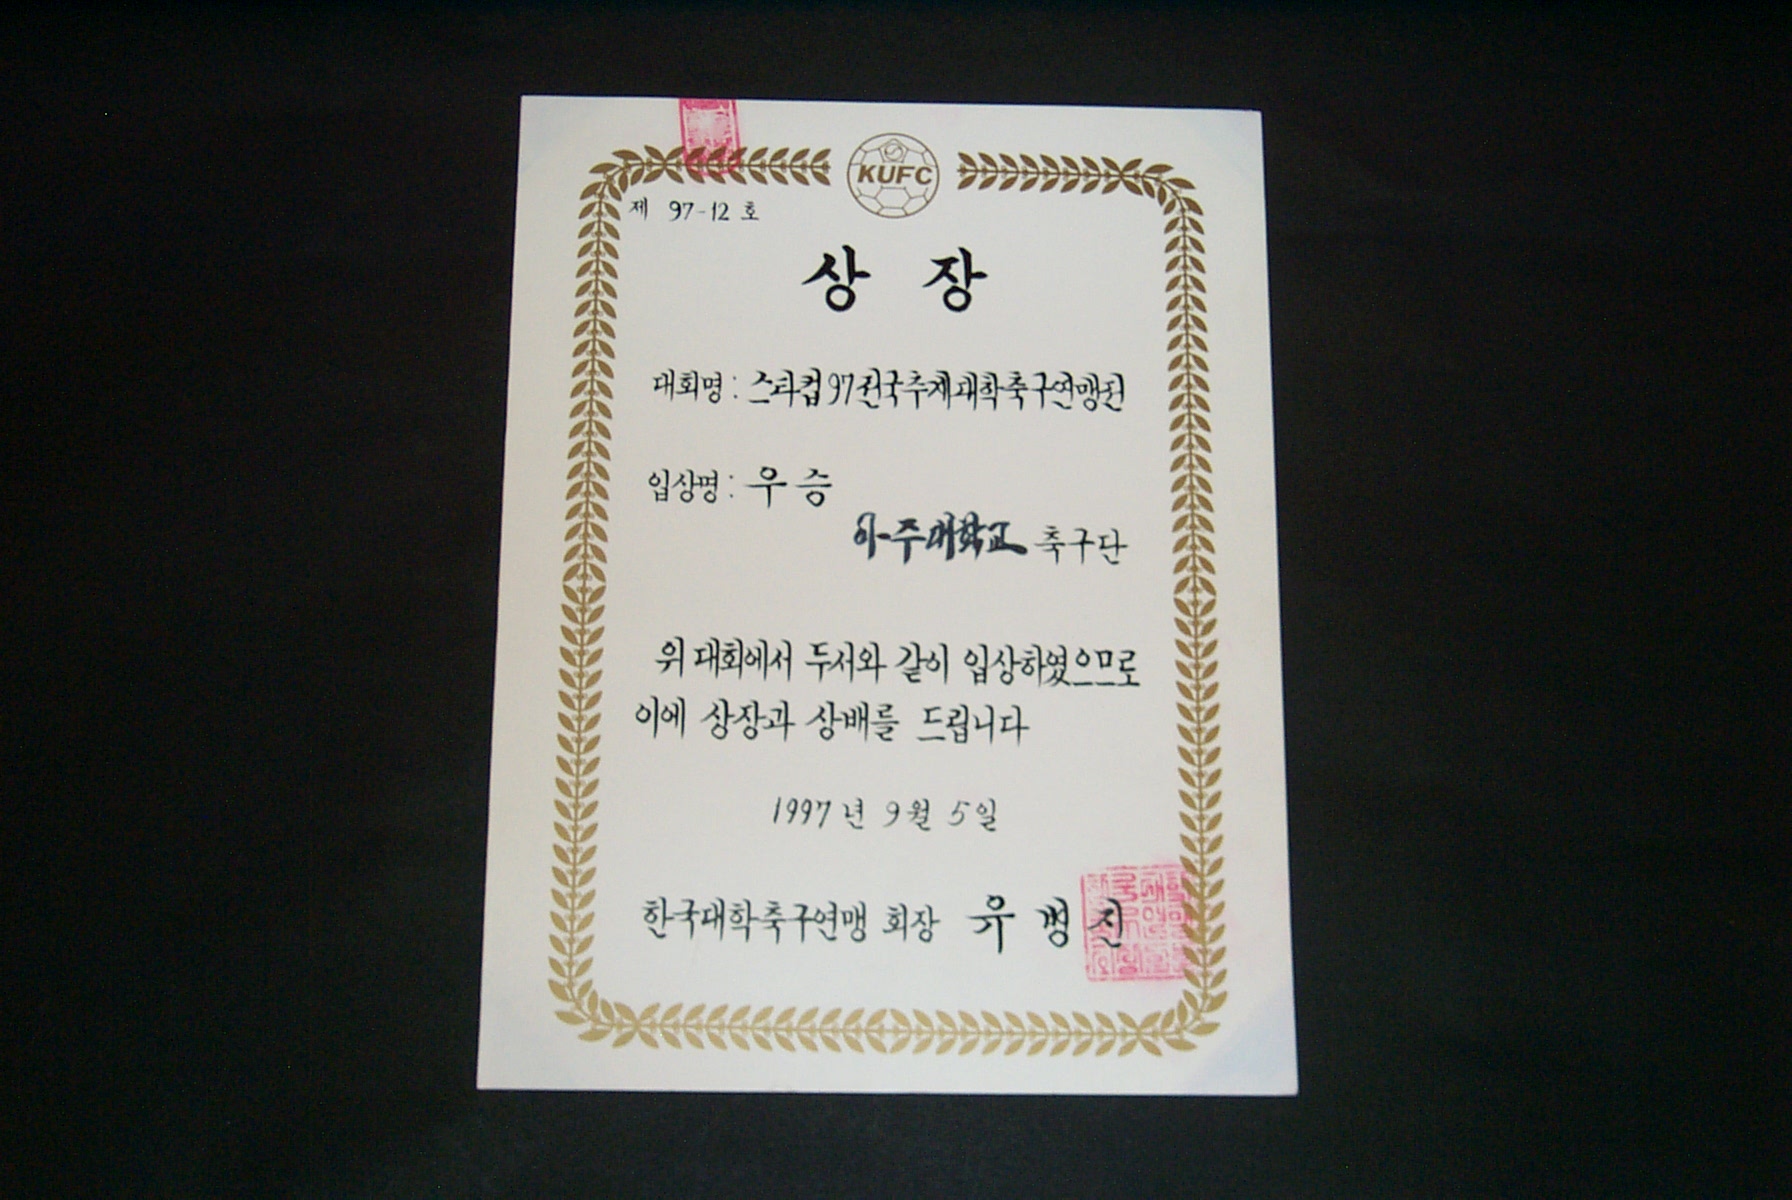 KUFC
제 97-12 호
상 장
대회명 : 스타컵97전국추계대학축구연맹전
입상명 : 우 승
아주대학교 축구단
위 대회에서 두서와 같이 입상하였으므로
이에 상장과 상배를 드립니다
1997년 9월 5일
한국대학축구연맹 회장 유 병 진